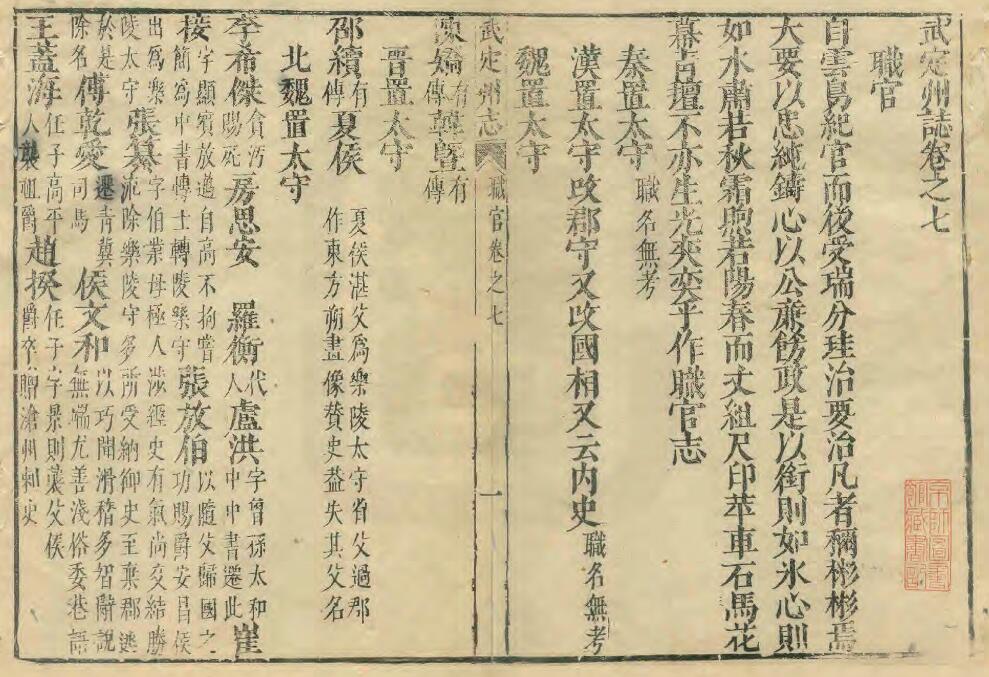 武定州誌卷之七
職官
白雲鳥紀官而後受瑞分珪治要治凡者稱彬彬焉
大要以忠純鑄心以公廉飭政是以銜則如氷心則
如水肅若秋霜煦若陽春而丈組尺印苹車石馬花
幕舌壇不亦生光奕奕乎作職官志
秦置太守職名無考
漢置太守攻郡守又攻國相又云内史職名無考
魏置太守
武定州志 職官卷之七 一
陳矯有傳韓暨有傳
晋置太守
邵續有傳夏侯夏侯湛父為樂陵太守省父過郡作東方朔畫像贊史葢失其父名
北魏置太守
李希傑貪污賜死房思安 羅衡代人盧洪字曾孫太和中中書遷此崔
接字顯賓放邁自高不拘嘗簡為中書博士轉陵樂守張放伯以隨父歸國之功賜爵安昌侯
出為樂陵太守張纂字伯業母極人涉經史有氣尚交結勝流除樂陵守多所受納御史至棄郡逃
於是除名傅乾愛遷青冀司馬侯文和以巧聞滑稽多智辭說無端尤善淺俗委巷語
王蓋海任子高平人襲祖爵趙揆任子字景則襲父侯爵卒贈滄州刺史